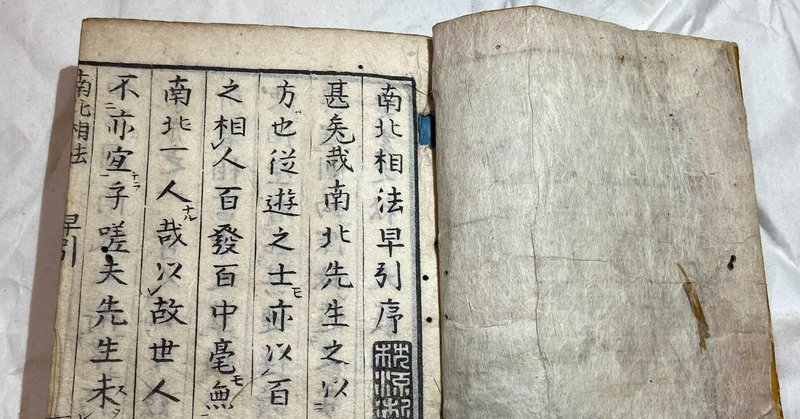 南北相法早引序
甚矣哉南北先生之以
方也從遊之士モ亦以百
之相人百發百中毫モ無
南北一人ナル哉以故世人
不亦宜ナラ乎嗟夫先生未
南北相法 早引